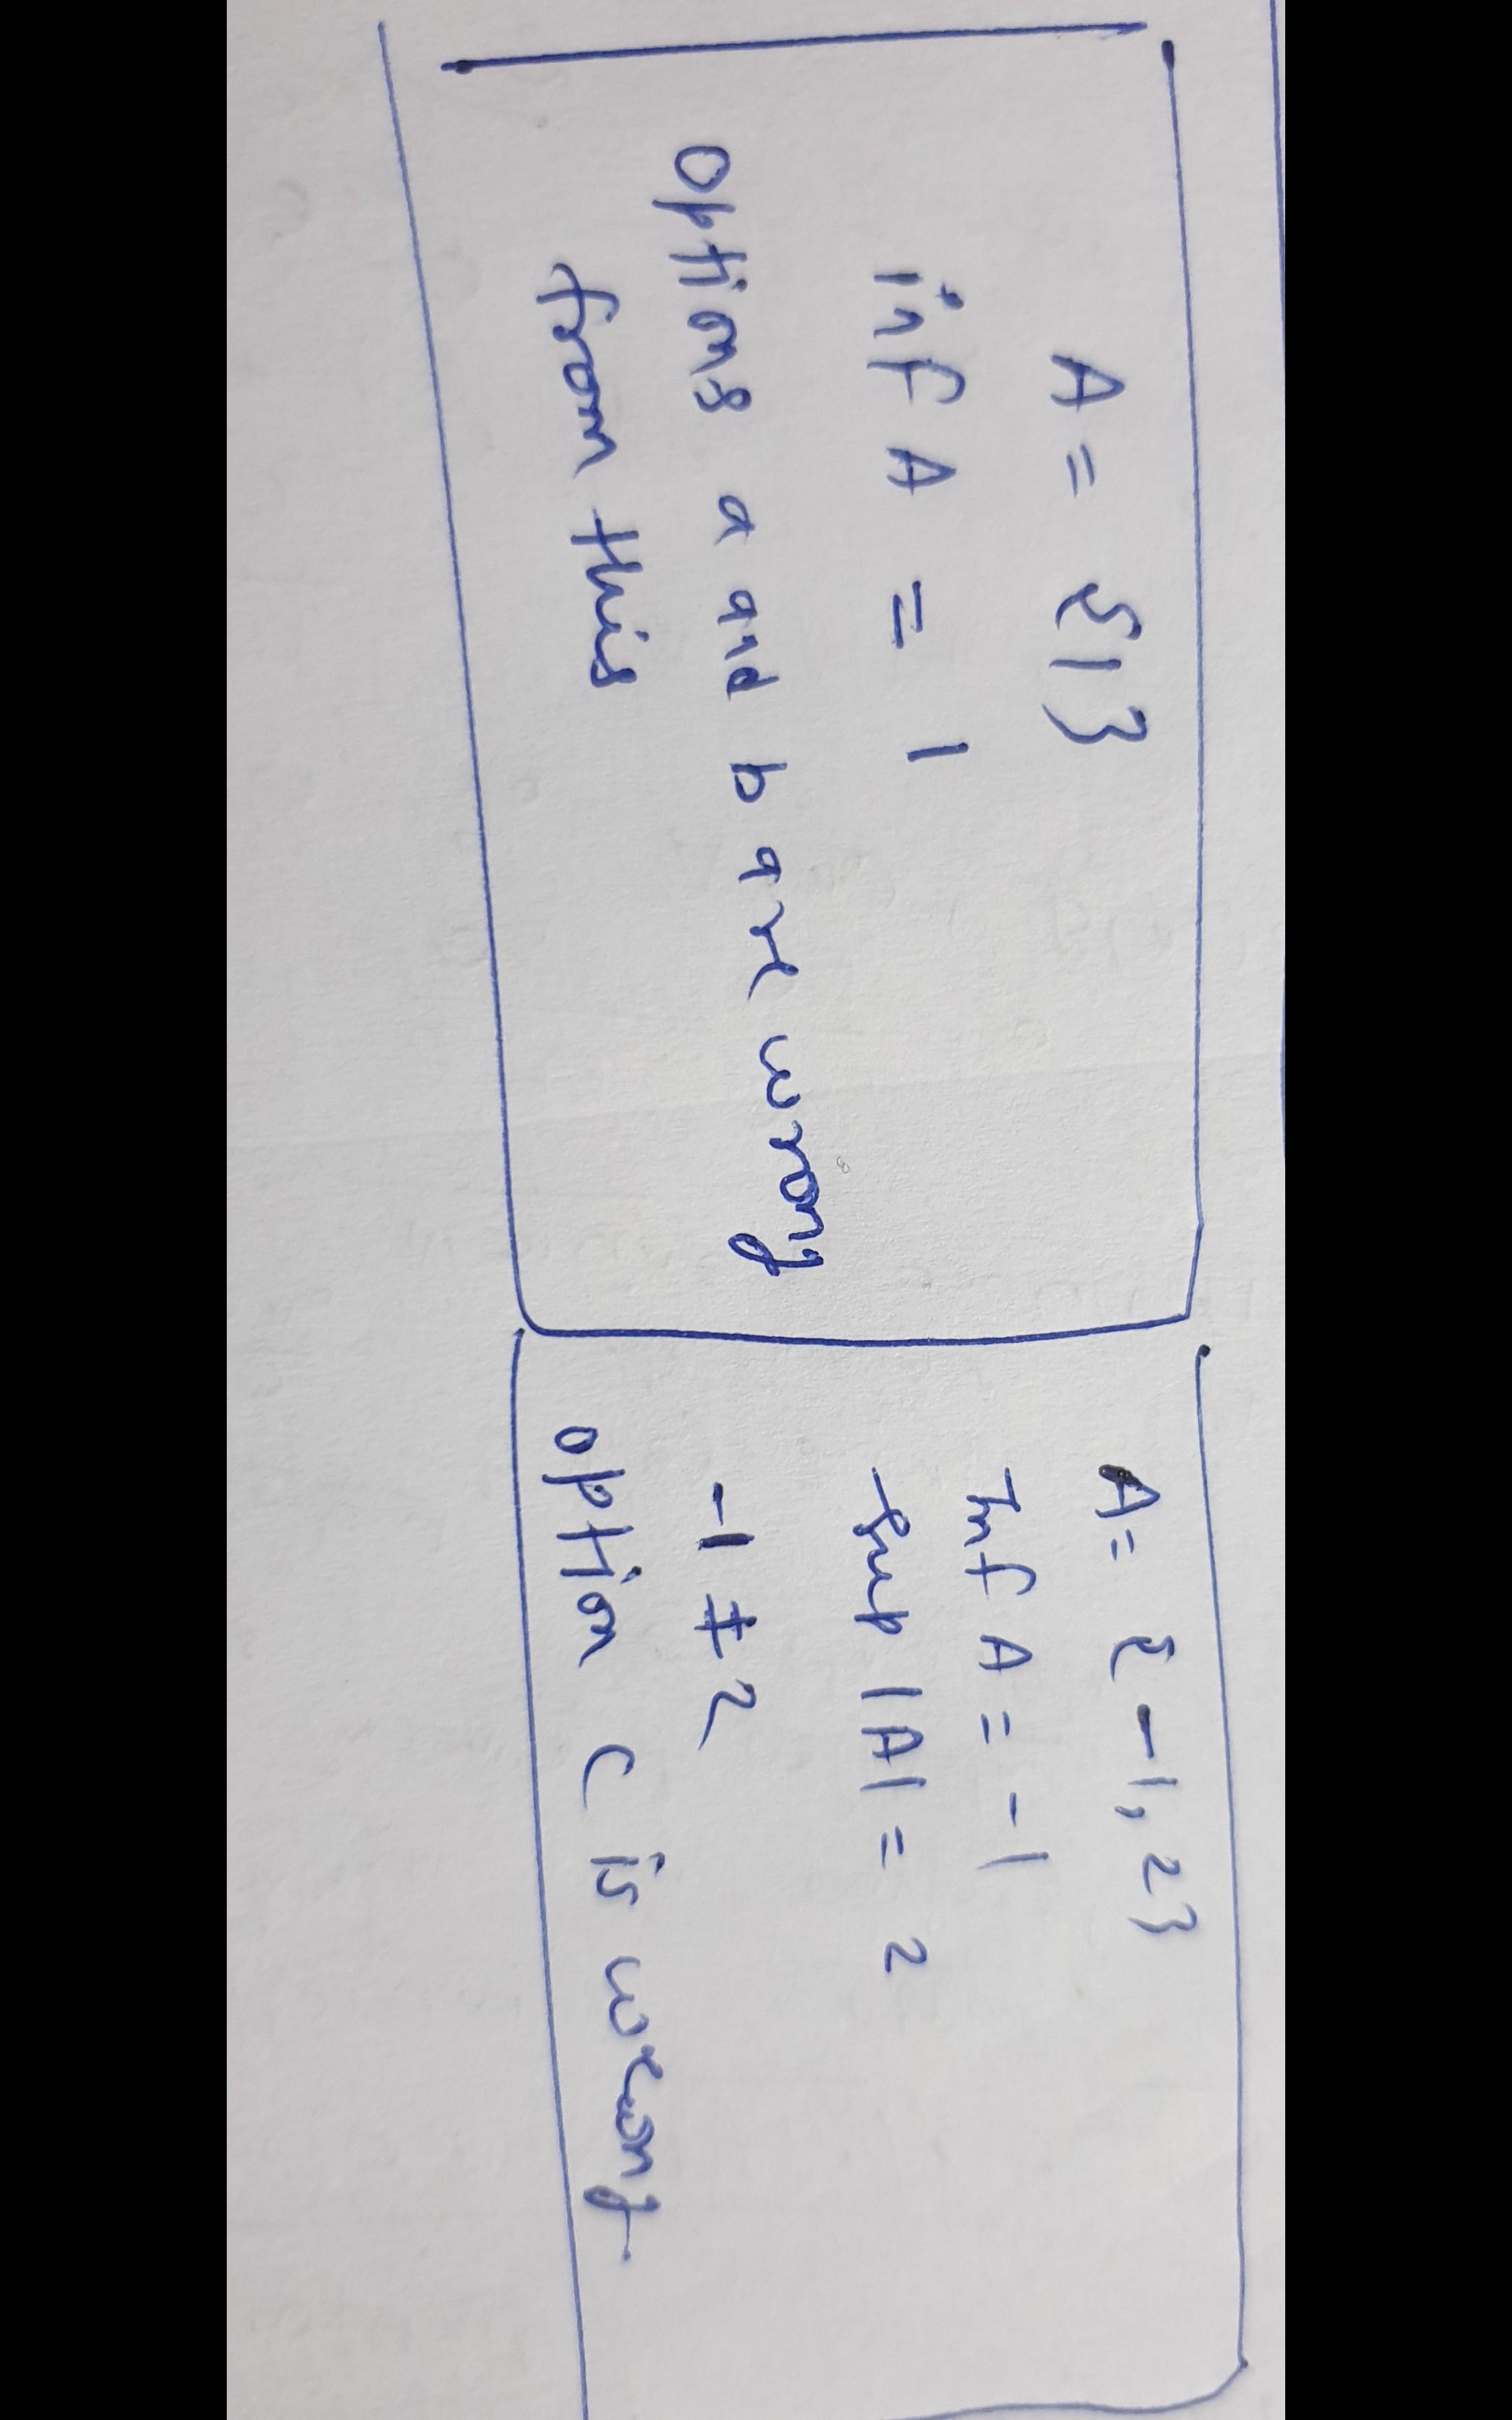 A = {1}
inf A = 1
options a and b are wrong
from this
A = {-1, 2}
Inf A = -1
Sup |A| = 2
-1 ≠ 2
option c is wrong.